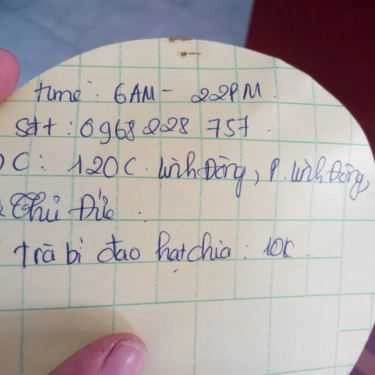 time: 6AM - 22PM.
Sđt: 0968 228 757.
ĐC: 120C. Linh Đông, P. Linh Đông,
Thủ Đức.
Trà bí đao hạt chia: 10K.